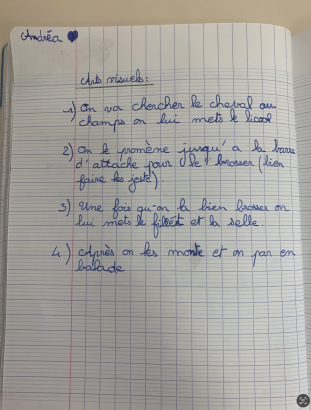 Andréa
Arts visuels:
1) On va chercher le cheval au
champs on lui mets le licol
2) On le promène jusqu'a la barre
d'attache pour le brosser (bien
faire les jeste)
3) Une fois qu'on la bien brosser on
lui mets le filet et la selle.
4) Après on les monte et on par en
balade